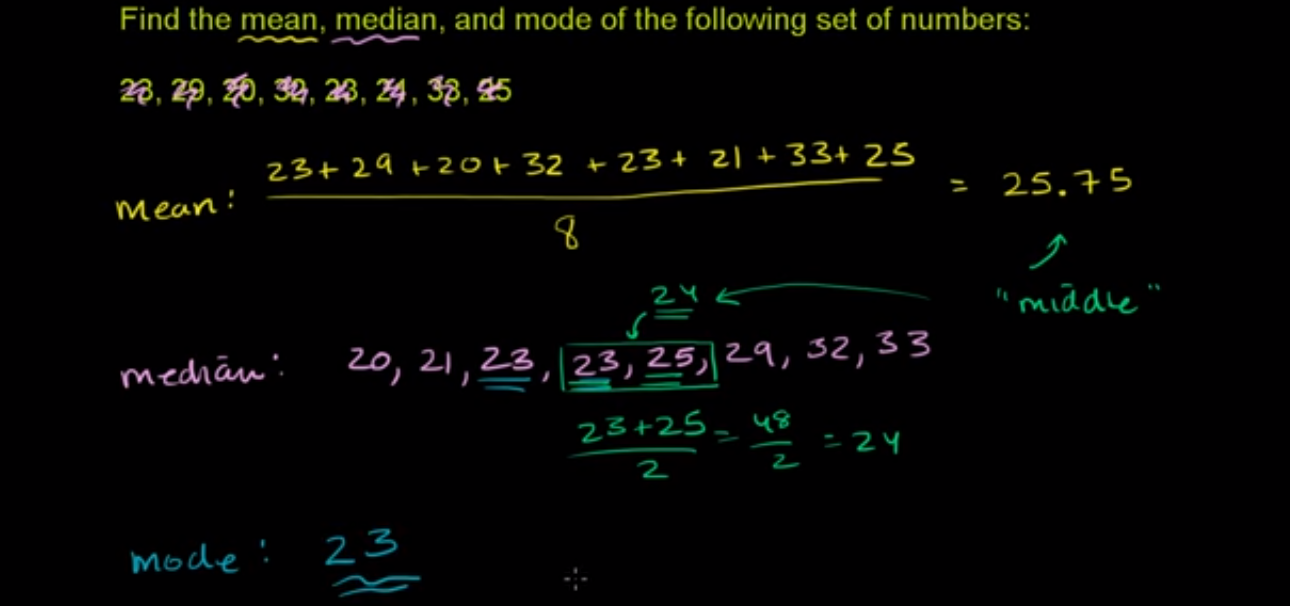 Find the mean, median, and mode of the following set of numbers:
23, 29, 20, 32, 23, 21, 33, 25
mean: 23+29+20+32+23+21+33+25 / 8 = 25.75
24
"middle"
median: 20, 21, 23, 23, 25, 29, 32, 33
23+25 / 2 = 48 / 2 = 24
mode: 23